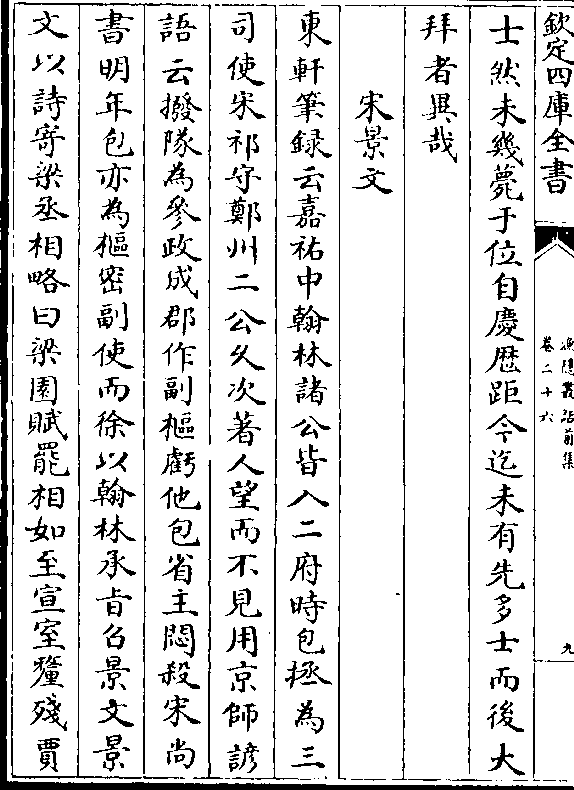 欽定四庫全書
漁隱叢話前集
卷二十六
九
士然未幾薨于位自慶厯距今迄未有先多士而後大
拜者異哉
宋景文
東軒筆録云嘉祐中翰林諸公皆入二府時包拯為三
司使宋祁守鄭州二公久次著人望而不見用京師諺
語云撥隊為參政成郡作副樞虧他包省主悶殺宋尚
書明年包亦為樞密副使而徐以翰林承旨召景文景
文以詩寄梁丞相略曰梁園賦罷相如至宣室釐殘賈